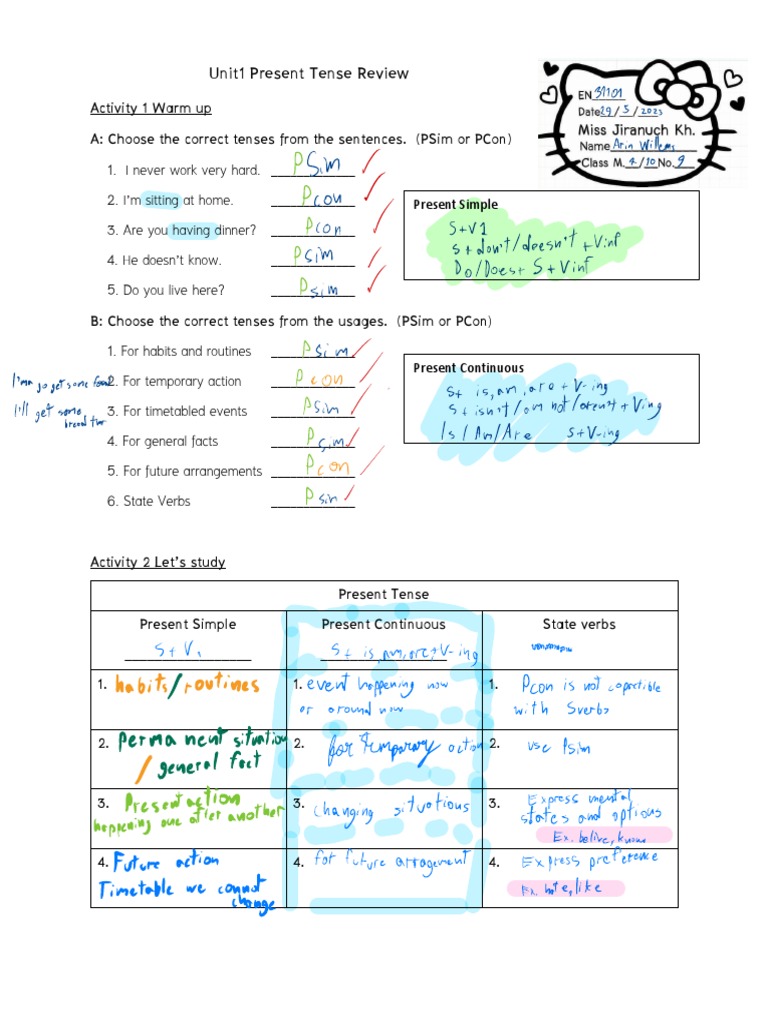 Unit1 Present Tense Review
EN 31101
Date 29 / 5 / 2023
Miss Jiranuch Kh.
Name Arin Willems
Class M. 4 / 10 No. 9
Activity 1 Warm up
A: Choose the correct tenses from the sentences. (PSim or PCon)
1. I never work very hard. PSim
2. I'm sitting at home. Pcon
3. Are you having dinner? Pcon
4. He doesn't know. Psim
5. Do you live here? Psim
Present Simple
S+V1
S+don't/doesn't +Vinf
Do/Does+ S+Vinf
B: Choose the correct tenses from the usages. (PSim or PCon)
1. For habits and routines Psim
I'mma go get some food
2. For temporary action Pcon
I'll get some
3. For timetabled events Psim
4. For general facts Psim
5. For future arrangements Pcon
6. State Verbs Psin
Present Continuous
S+ is, am, are + V-ing
S+ isn't/am not/aren't + Ving
Is / Am / Are S+V-ing
Activity 2 Let's study
Present Tense
Present Simple
S+ V1
Present Continuous
S+ is, am, are+V-ing
State verbs
1. habits/routines
1. event happening now
or around now
1. Pcon is not copectible
with Sverbs
2. Permanent situation
/ general fact
2. for temporary action
2. use Psim
3. Present action
happening one after another
3. changing situations
3. Express mental
states and options
Ex. belive, know
4. Future action
Timetable we cannot
change
4. for future arragement
4. Express preference
Ex. hate, like